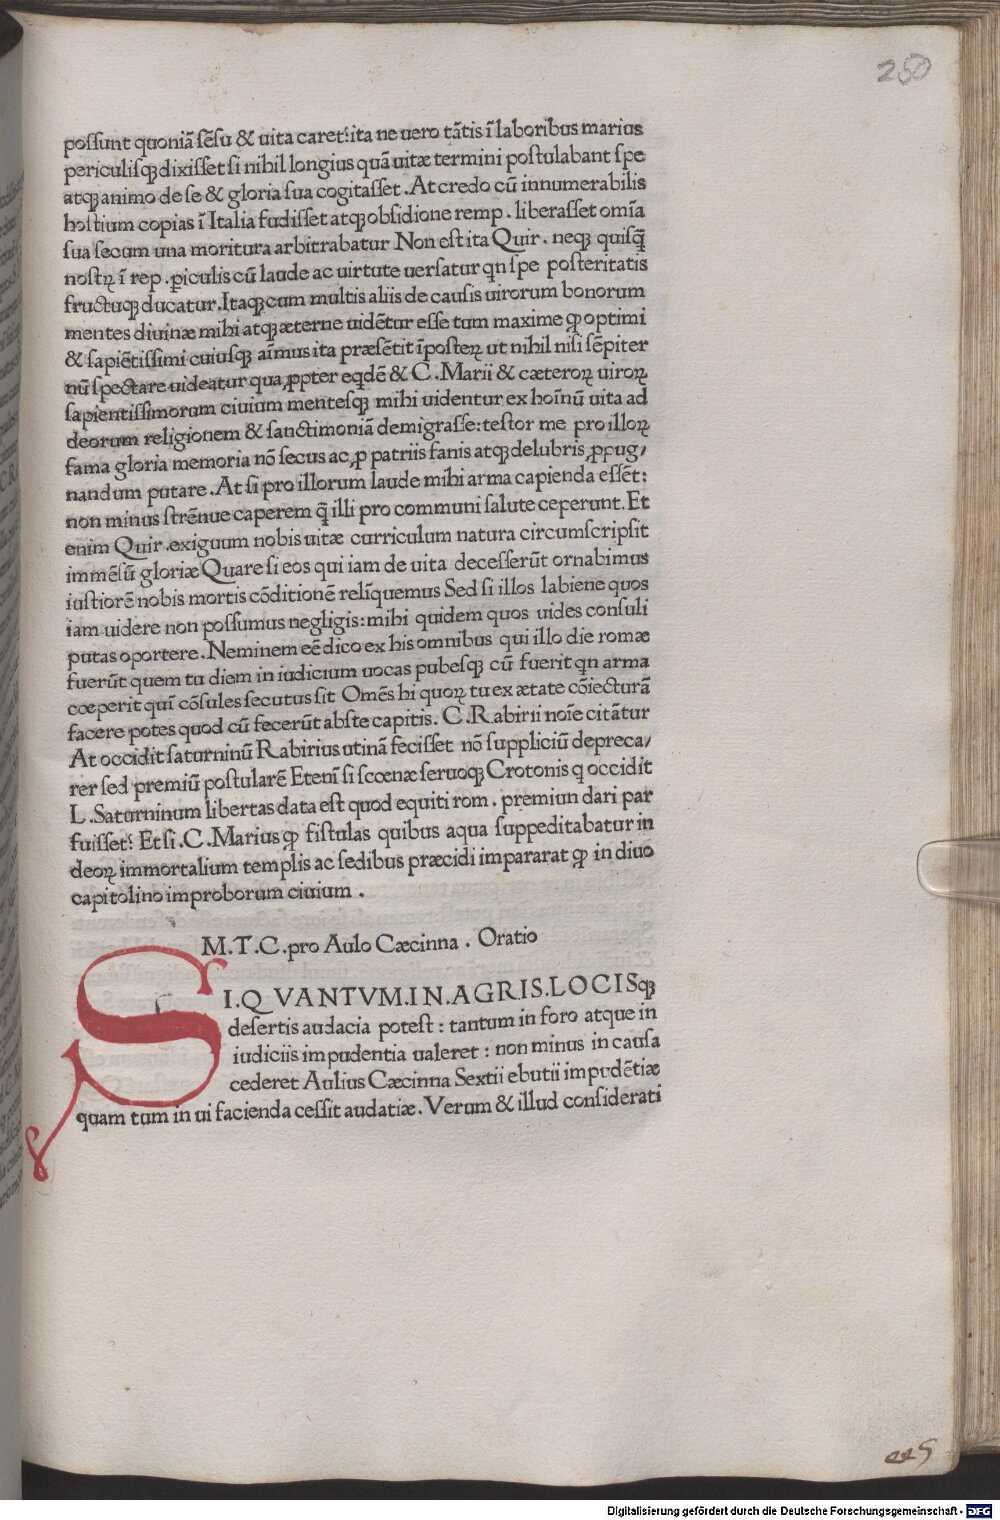 280
possunt quoniã sẽsu & uita caret: ita ne uero tãtis ĩ laboribus marius
periculisꝗ dixisset si nihil longius quã uitæ termini postulabant spe
atꝗ animo de se & gloria sua cogitasset. At credo cũ innumerabilis
hostium copias ĩ Italia fudisset atꝗ obsidione remp. liberasset omĩa
sua secum una moritura arbitrabatur Non est ita Quir. neꝗ quisq̃
nostꝝ ĩ rep. ꝑiculis cũ laude ac uirtute uersatur qn spe posteritatis
fructuꝗ ducatur. Itaꝗ cum multis aliis de causis uirorum bonorum
mentes diuinæ mihi atꝗ æterne uidẽtur esse tum maxime ꝙ optimi
& sapiẽtissimi cuiusꝗ aĩmus ita præsẽtit ĩposteꝝ ut nihil nisi sẽpiter
nũ spectare uideatur qua ꝓpter eqdẽ & C. Marii & cæteroꝝ uiroꝝ
sapientissimorum ciuium mentesꝗ mihi uidentur ex hoĩnũ uita ad
deorum religionem & sanctimoniã demigrasse: testor me pro illoꝝ
fama gloria memoria nõ secus ac ꝓ patriis fanis atꝗ delubris ꝓpug/
nandum putare. At si pro illorum laude mihi arma capienda essẽt:
non minus strẽnue caperem q̃ illi pro communi salute ceperunt. Et
enim Quir. exiguum nobis uitæ curriculum natura circumscripsit
immẽsũ gloriæ Quare si eos qui iam de uita decesserũt ornabimus
iustiorẽ nobis mortis cõditionẽ relĩquemus Sed si illos labiene quos
iam uidere non possumus negligis: mihi quidem quos uides consuli
putas oportere. Neminem eẽ dico ex his omnibus qui illo die romæ
fuerũt quem tu diem in iudicium uocas pubesꝗ cũ fuerit qn arma
cœperit quĩ cõsules secutus sit Omẽs hi quoꝝ tu ex ætate cõiecturã
facere potes quod cũ fecerũt abste capitis. C. Rabirii noĩe citãtur
At occidit saturninũ Rabirius utinã fecisset nõ suppliciũ depreca/
rer sed premiũ postularẽ Etenĩ si scœnæ seruoꝗ Crotonis q occidit
L. Saturninum libertas data est quod equiti rom. premiun dari par
fuisset: Et si. C. Marius ꝙ fistulas quibus aqua suppeditabatur in
deoꝝ immortalium templis ac sedibus præcidi impararat ꝙ in diuo
capitolino improborum ciuium.
M.T.C. pro Aulo Cæcinna. Oratio
SI.QVANTVM.IN.AGRIS.LOCISꝗ
desertis audacia potest: tantum in foro atque in
iudiciis impudentia ualeret: non minus in causa
cederet Aulius Cæcinna Sextii ebutii impudẽtiæ
quam tum in ui facienda cessit audatiæ. Verum & illud considerati
Digitalisierung gefördert durch die Deutsche Forschungsgemeinschaft - DFG